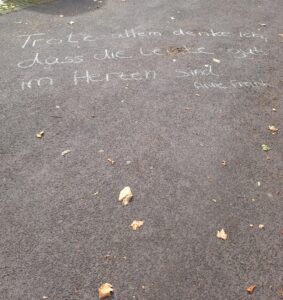 Trotz allem denke ich,
dass die Leute gut
im Herzen sind
Anne Frank